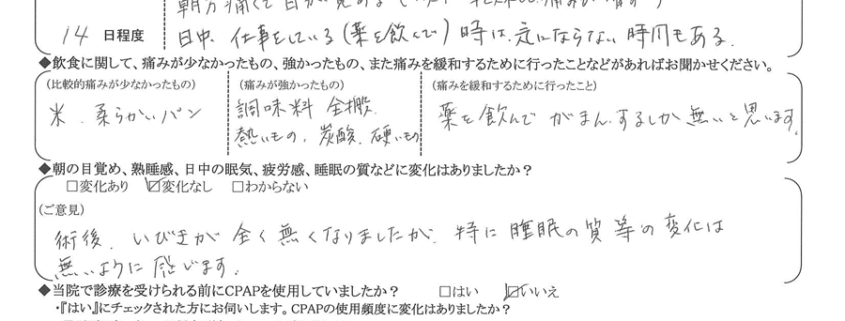 14 日程度
日中、仕事をしている(薬を飲んで)時は、気にならない時間もある。
◆飲食に関して、痛みが少なかったもの、強かったもの、また痛みを緩和するために行ったことなどがあればお聞かせください。
(比較的痛みが少なかったもの) (痛みが強かったもの) (痛みを緩和するために行ったこと)
米、柔らかいパン 調味料 全般、 薬を飲んでがまんするしか無いと思います。
熱いもの、炭酸、硬いもの
◆朝の目覚め、熟睡感、日中の眠気、疲労感、睡眠の質などに変化はありましたか?
□変化あり ☑変化なし □わからない
(ご意見)
術後、いびきが全く無くなりましたが、特に睡眠の質等の変化は
無いように感じます。
◆当院で診療を受けられる前にCPAPを使用していましたか? □はい ☑いいえ
・『はい』にチェックされた方にお伺いします。CPAPの使用頻度に変化はありましたか?